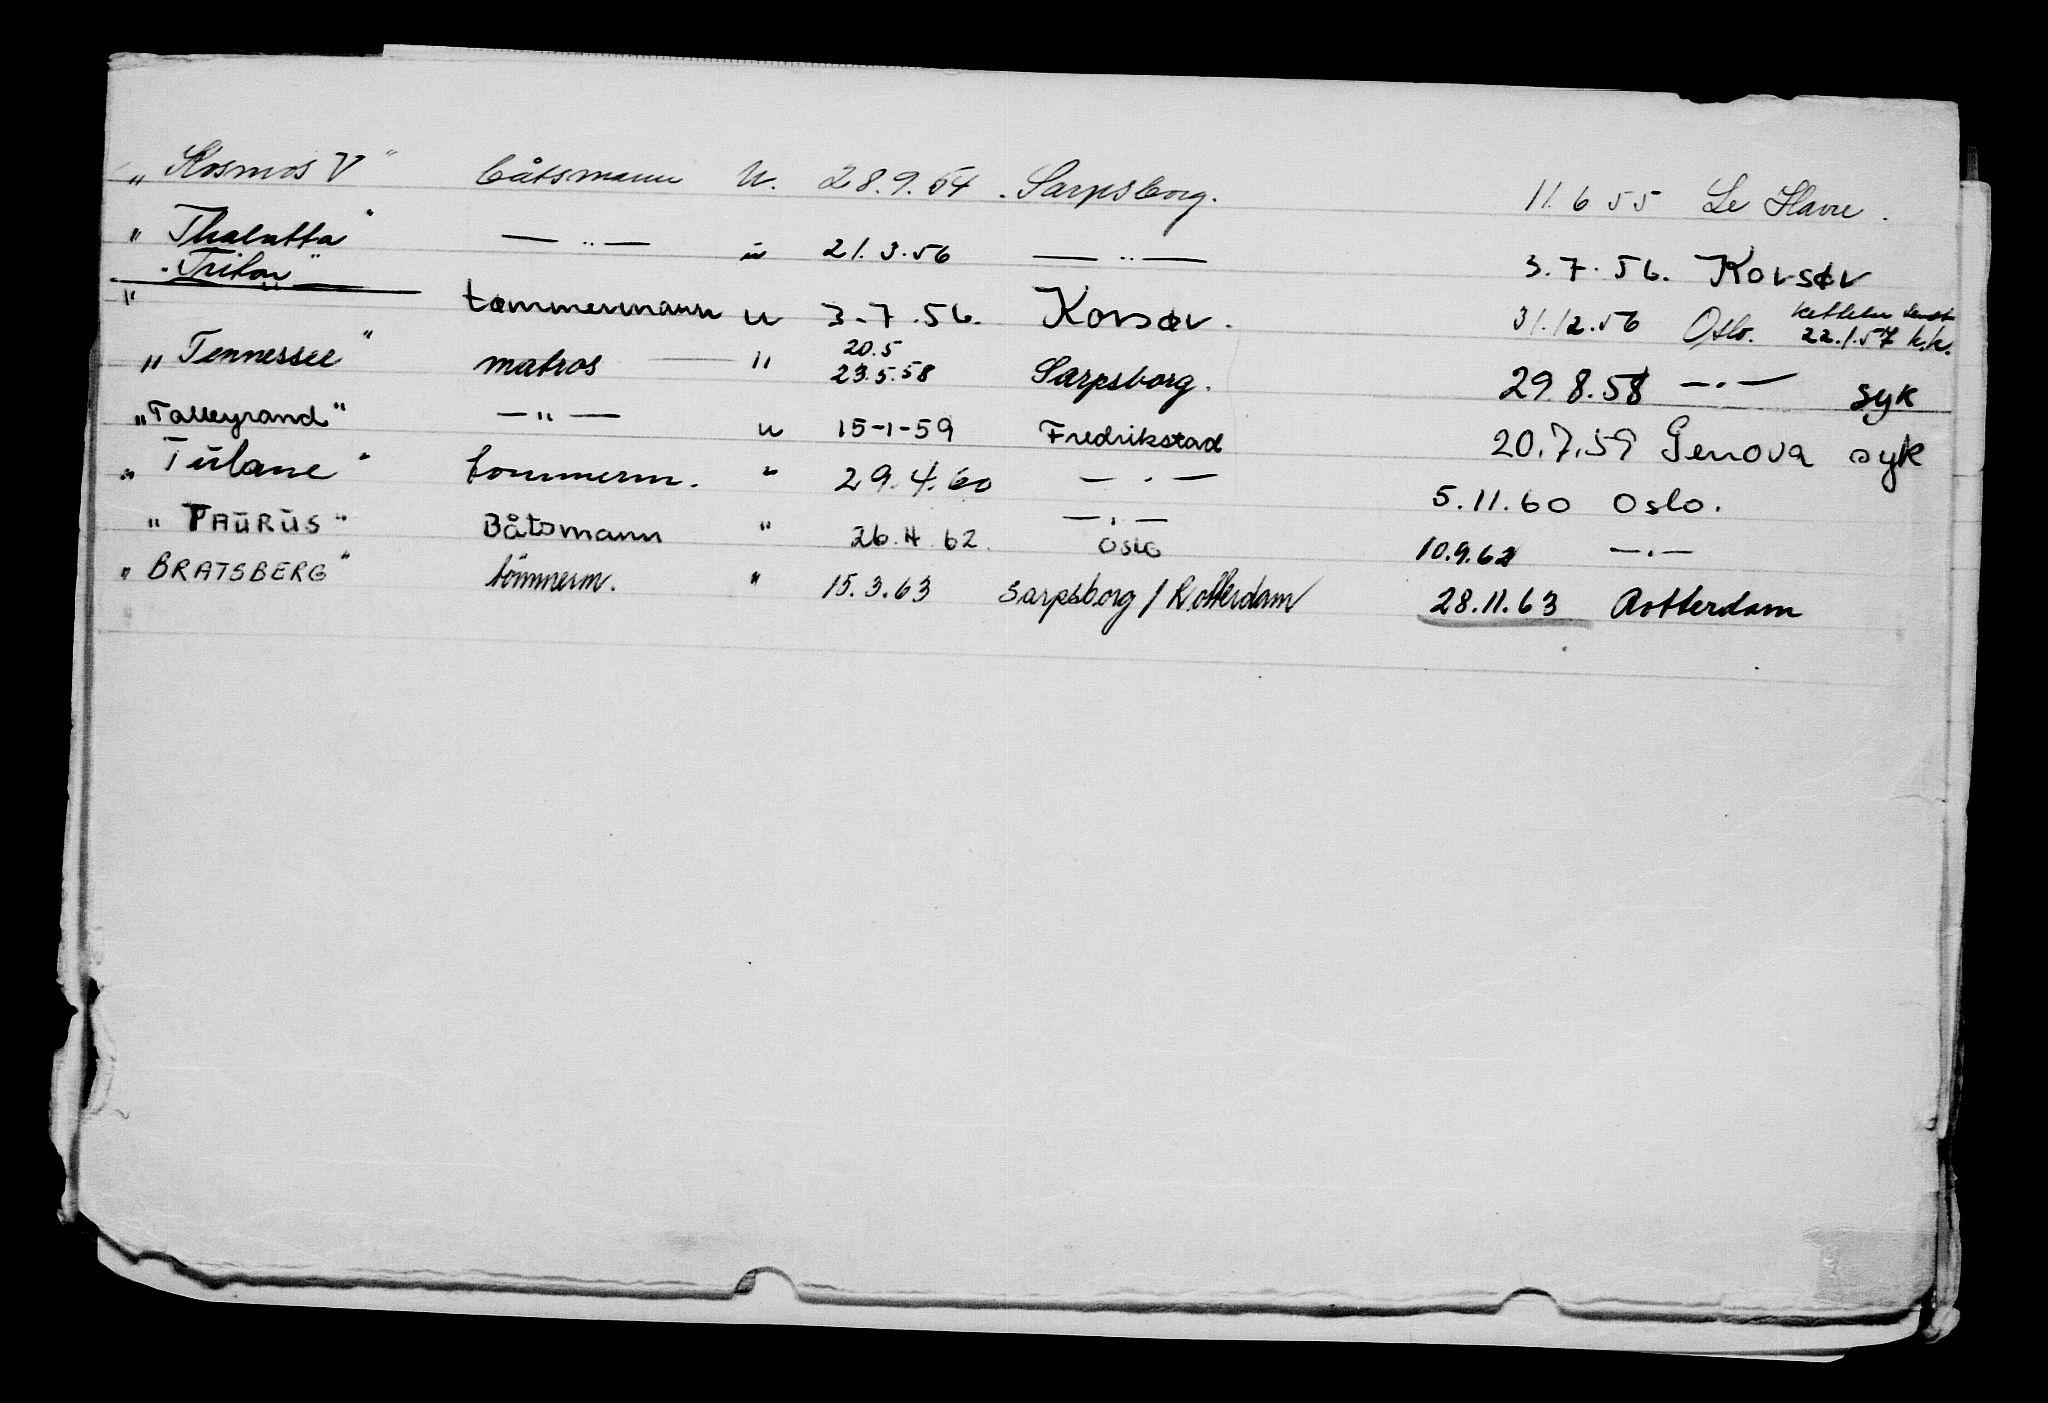 „ Kosmos V " båtsmann U. 28.9.54 . Sarpsborg. 11.6 55 Le Havre .
" Thalatta " — " — " 21.3.56 — " — 3.7.56. Korsør
" Triton " tømmermann u 3-7.56. Korsør. 31.12.56 Oslo. 22.1.57 k.k.
„ Tennessee " matros — " 20.5 23.5.58 Sarpsborg. 29.8.58 — " — syk
„Talleyrand" — " — u 15-1-59 Fredrikstad 20.7.59 Genova syk
„ Tulane " tømmerm. " 29.4.60 — " — 5.11.60 Oslo.
„ TAURUS " Båtsmann " 26.4.62. — " — Oslo 10.9.62 — " —
„ BRATSBERG " tömmerm. " 15.3.63 Sarpsborg / Rotterdam 28.11.63 Rotterdam